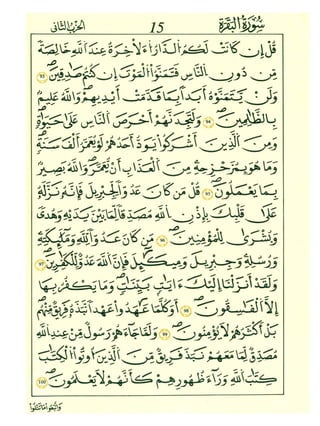 سُورَةُ البَقَرَة
15
الحزب الثاني
قُلِ اِن كَانَتْ لَكُمُ الدَّارُ اُ۬لَاخِرَةُ عِندَ اَللَّهِ خَالِصَةً
مِّن دُونِ النَّاسِ فَتَمَنَّوُا الْمَوْتَ إِن كُنتُمْ صَٰدِقِينَ 93
وَلَنْ يَّتَمَنَّوْهُ أَبَدًا بِمَا قَدَّمَتْ أَيْدِيهِمْ وَاللَّهُ عَلِيمٌ
بِالظَّٰلِمِينَ 94 وَلَتَجِدَنَّهُمْ أَحْرَصَ النَّاسِ عَلَىٰ حَيَوٰةٍ
وَمِنَ الَّذِينَ أَشْرَكُوا يَوَدُّ أَحَدُهُمْ لَوْ يُعَمَّرُ أَلْفَ سَنَةٍ
وَمَا هُوَ بِمُزَحْزِحِهِ مِنَ الْعَذَابِ أَنْ يُّعَمَّرَ وَاللَّهُ بَصِيرٌ
بِمَا يَعْمَلُونَ 95 قُلْ مَن كَانَ عَدُوًّا لِّجِبْرِيلَ فَإِنَّهُ نَزَّلَهُ
عَلَىٰ قَلْبِكَ بِإِذْنِ اللَّهِ مُصَدِّقًا لِّمَا بَيْنَ يَدَيْهِ وَهُدًى
وَبُشْرَىٰ لِلْمُؤْمِنِينَ 96 مَن كَانَ عَدُوًّا لِّلَّهِ وَمَلَٰئِكَتِهِ
وَرُسُلِهِ وَجِبْرِيلَ وَمِيكَٰئِلَ فَإِنَّ اللَّهَ عَدُوٌّ لِّلْكَٰفِرِينَ 97
وَلَقَدْ أَنزَلْنَا إِلَيْكَ ءَايَٰتٍ بَيِّنَٰتٍ وَمَا يَكْفُرُ بِهَا
إِلَّا الْفَٰسِقُونَ 98 أَوَكُلَّمَا عَٰهَدُوا عَهْدًا نَّبَذَهُ فَرِيقٌ مِّنْهُم
بَلْ أَكْثَرُهُمْ لَا يُؤْمِنُونَ 99 وَلَمَّا جَاءَهُمْ رَسُولٌ مِّنْ عِندِ اللَّهِ
مُصَدِّقٌ لِّمَا مَعَهُمْ نَبَذَ فَرِيقٌ مِّنَ الَّذِينَ أُوتُوا الْكِتَٰبَ
كِتَٰبَ اللَّهِ وَرَاءَ ظُهُورِهِمْ كَأَنَّهُمْ لَا يَعْلَمُونَ 100
وَاتَّبَعُوا مَا تَتْلُوا